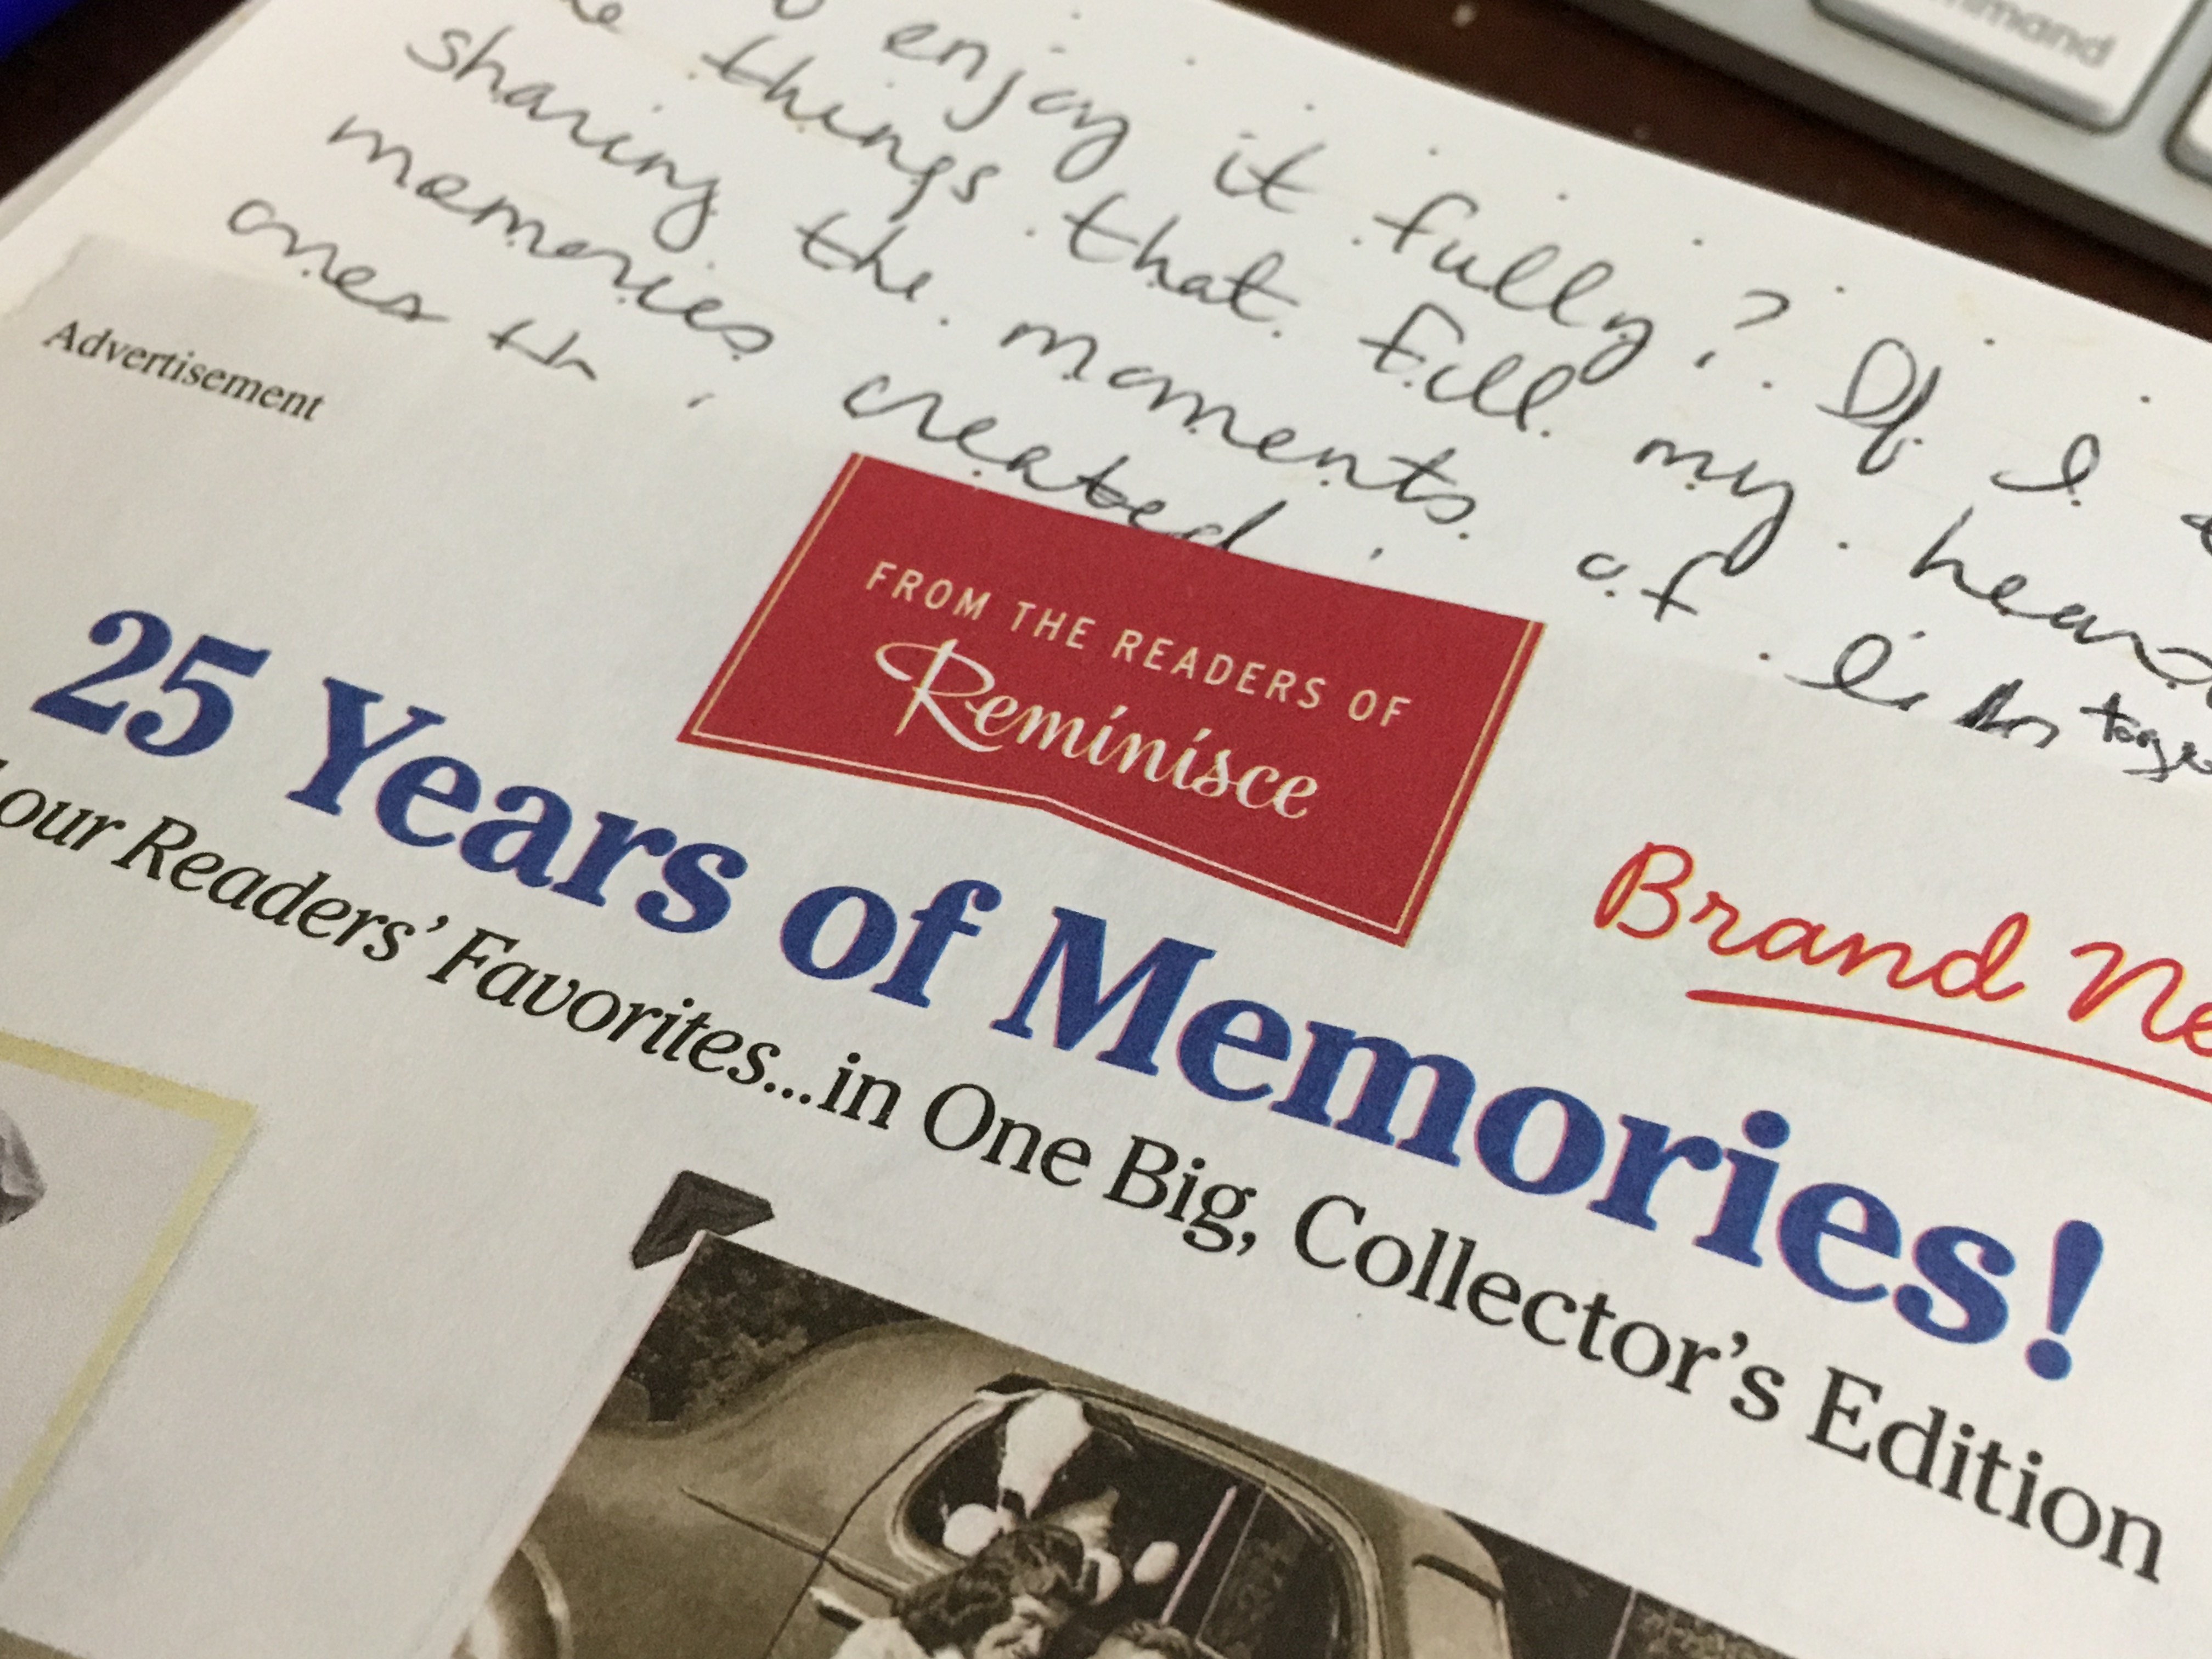 mmand
enjoy it fully? If I
things that fill my hear
sharing the moments of toge
memories created
ones
Advertisement
FROM THE READERS OF
Reminisce
Brand Ne
25 Years of Memories!
our Readers' Favorites...in One Big, Collector's Edition